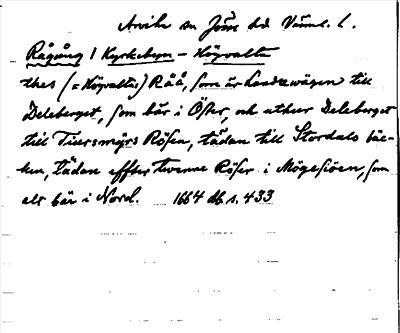 Arvika sn Jösse hd Värml. l.
Rågång / Kyrkebyn - Högvalta
thes (= Högvaltas) Råå, som är Landzwägen till
Deleberget, som bär i Öster, och uthur Deleberget
till Tiersmyrs Rösen, tädan till Stordals bäc-
ken, tädan effter twenne Röser i Mögesiöen, som
alt bär i Nord. 1664 db s. 433